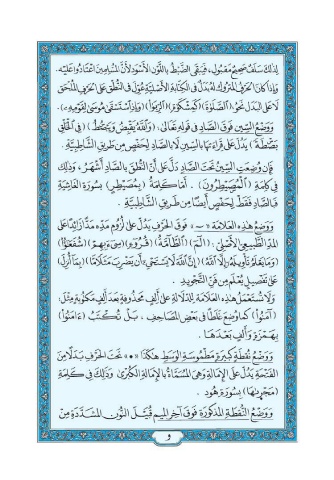 لِذلكَ سَلَفٌ صَحِيحٌ مَقبُولٌ، فَيَبْقَى الضَّبْطُ بِاللَّوْنِ الأَسْوَدِ لأَنَّ المُسْلِمِينَ اعْتَادُوا عَلَيْهِ.
وَإِذَا كَانَ الحَرْفُ المَتْرُوكُ لَهُ بَدَلٌ فِي الكِتَابَةِ الأَصْلِيَّةِ عُوِّلَ فِي النُّطْقِ عَلَى الحَرْفِ المُلْحَقِ
لَا عَلَى البَدَلِ نَحْوُ (الصَّلَوٰةَ) (كَمِشْكَوٰةٍ) (الرِّبَوٰا) (وَإِذِ اسْتَسْقَىٰ مُوسَىٰ لِقَوْمِهِ).
وَوَضْعُ السِّينِ فَوْقَ الصَّادِ فِي قَوْلِهِ تَعَالَى (وَاللَّهُ يَقْبِضُ وَيَبْصُۜطُ) (فِي الْخَلْقِ
بَصْۜطَةً) يَدُلُّ عَلَى قِرَاءَتِهَا بِالسِّينِ لَا بِالصَّادِ لِحَفْصٍ مِن طَرِيقِ الشَّاطِبِيَّةِ.
فَإِن وُضِعَتِ السِّينُ تَحْتَ الصَّادِ دَلَّ عَلَى أَنَّ النُّطْقَ بِالصَّادِ أَشْهَرُ، وَذَلِكَ
فِي كَلِمَةِ (الْمُصَۣيْطِرُونَ). أَمَّا كَلِمَةُ (بِمُصَيْطِرٍ) بِسُورَةِ الغَاشِيَةِ
فَبِالصَّادِ فَقَطْ لِحَفْصٍ أَيْضًا مِن طَرِيقِ الشَّاطِبِيَّةِ.
وَوَضْعُ هٰذِهِ العَلَامَةِ « ~ » فَوْقَ الحَرْفِ يَدُلُّ عَلَى لُزُومِ مَدِّهِ مَدًّا زَائِدًا عَلَى
المَدِّ الطَّبِيعِيِّ الأَصْلِيِّ: (الٓمٓ) (الطَّآمَّةُ) (قُرُوٓءٍ) (سِيٓءَ بِهِمْ) (شُفَعَٰٓؤُا)
(وَمَا يَعْلَمُ تَأْوِيلَهُۥٓ إِلَّا اللَّهُ) (إِنَّ اللَّهَ لَا يَسْتَحْيِۦٓ أَن يَضْرِبَ مَثَلًا مَّا) (بِمَآ أُنزِلَ)
عَلَى تَفْصِيلٍ يُعْلَمُ مِن فَنِّ التَّجْوِيدِ.
وَلَا تُسْتَعْمَلُ هٰذِهِ العَلَامَةُ لِلدَّلَالَةِ عَلَى أَلِفٍ مَحْذُوفَةٍ بَعْدَ أَلِفٍ مَكْتُوبَةٍ مِثْلَ:
(آمَنُوا) كَمَا وُضِعَ غَلَطًا فِي بَعْضِ المَصَاحِفِ، بَلْ تُكْتَبُ (ءَامَنُوا)
بِهَمْزَةٍ وَأَلِفٍ بَعْدَهَا.
وَوَضْعُ نُقْطَةٍ كَبِيرَةٍ مَطْمُوسَةِ الوَسَطِ هٰكَذَا «•» تَحْتَ الحَرْفِ بَدَلًا مِنَ
الفَتْحَةِ يَدُلُّ عَلَى الإِمَالَةِ وَهِيَ المُسَمَّاةُ بِالإِمَالَةِ الكُبْرَى وَذَلِكَ فِي كَلِمَةِ
(مَجْر۪ىٰهَا) بِسُورَةِ هُودٍ.
وَوَضْعُ النُّقْطَةِ المَذْكُورَةِ فَوْقَ آخِرِ المِيمِ قُبَيْلَ النُّونِ المُشَدَّدَةِ مِنْ
و